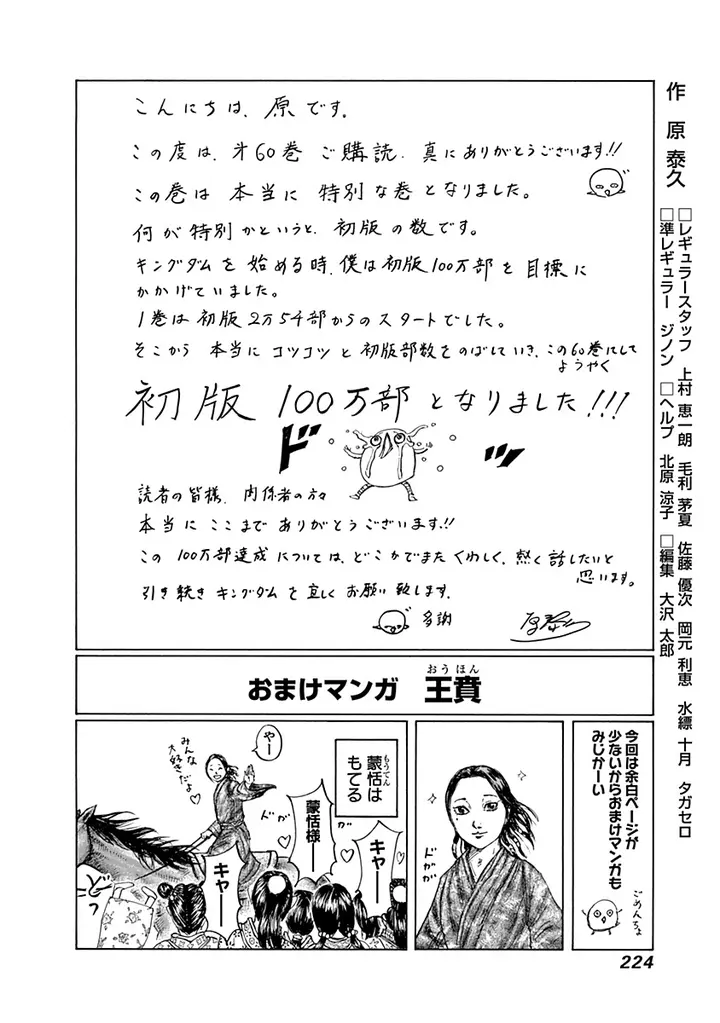 作 原 泰久
□レギュラースタッフ 上村 恵一朗 毛利 茅夏 佐藤 優次 岡元 利恵 水縹 十月 タガセロ
□準レギュラー ジノン □ヘルプ 北原 涼子 □編集 大沢 太郎
こんにちは、原です。
この度は、第60巻 ご購読、真にありがとうございます!!
この巻は 本当に 特別な巻となりました。
何が特別かというと、初版の数です。
キングダムを始める時、僕は初版100万部を目標に
かかげていました。
1巻は初版2万54部からのスタートでした。
そこから 本当にコツコツと初版部数をのばしていき、この60巻にして
ようやく
初版 100万部となりました!!!
ドッ
読者の皆様、関係者の方々
本当に ここまで ありがとうございます!!
この 100万部達成については、どこかでまた くわしく、熱く話したいと
思います。
引き続きキングダムを宜しくお願い致します。
多謝
原泰久
おうほん
おまけマンガ 王賁
今回は余白ページが
少ないからおまけマンガも
みじかーい
ごめんちょ
ドガガ
もうてん
蒙恬は
もてる
やー
みんな
大好きだよ♡
蒙恬様ー♡
キャー♡
キャー
どっ
224